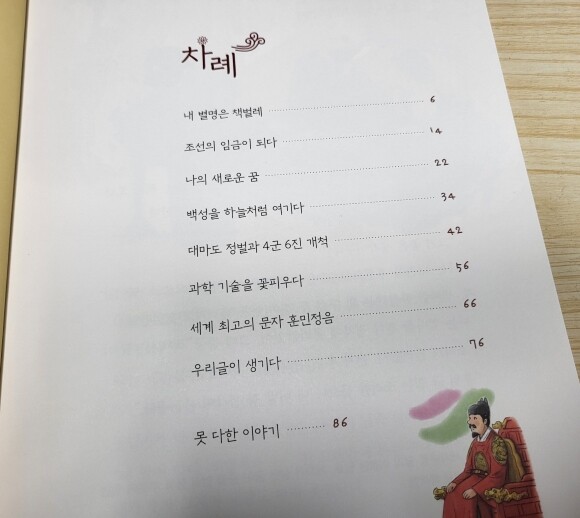 차례
내 별명은 책벌레 6
조선의 임금이 되다 14
나의 새로운 꿈 22
백성을 하늘처럼 여기다 34
대마도 정벌과 4군 6진 개척 42
과학 기술을 꽃피우다 56
세계 최고의 문자 훈민정음 66
우리글이 생기다 76
못 다한 이야기 86